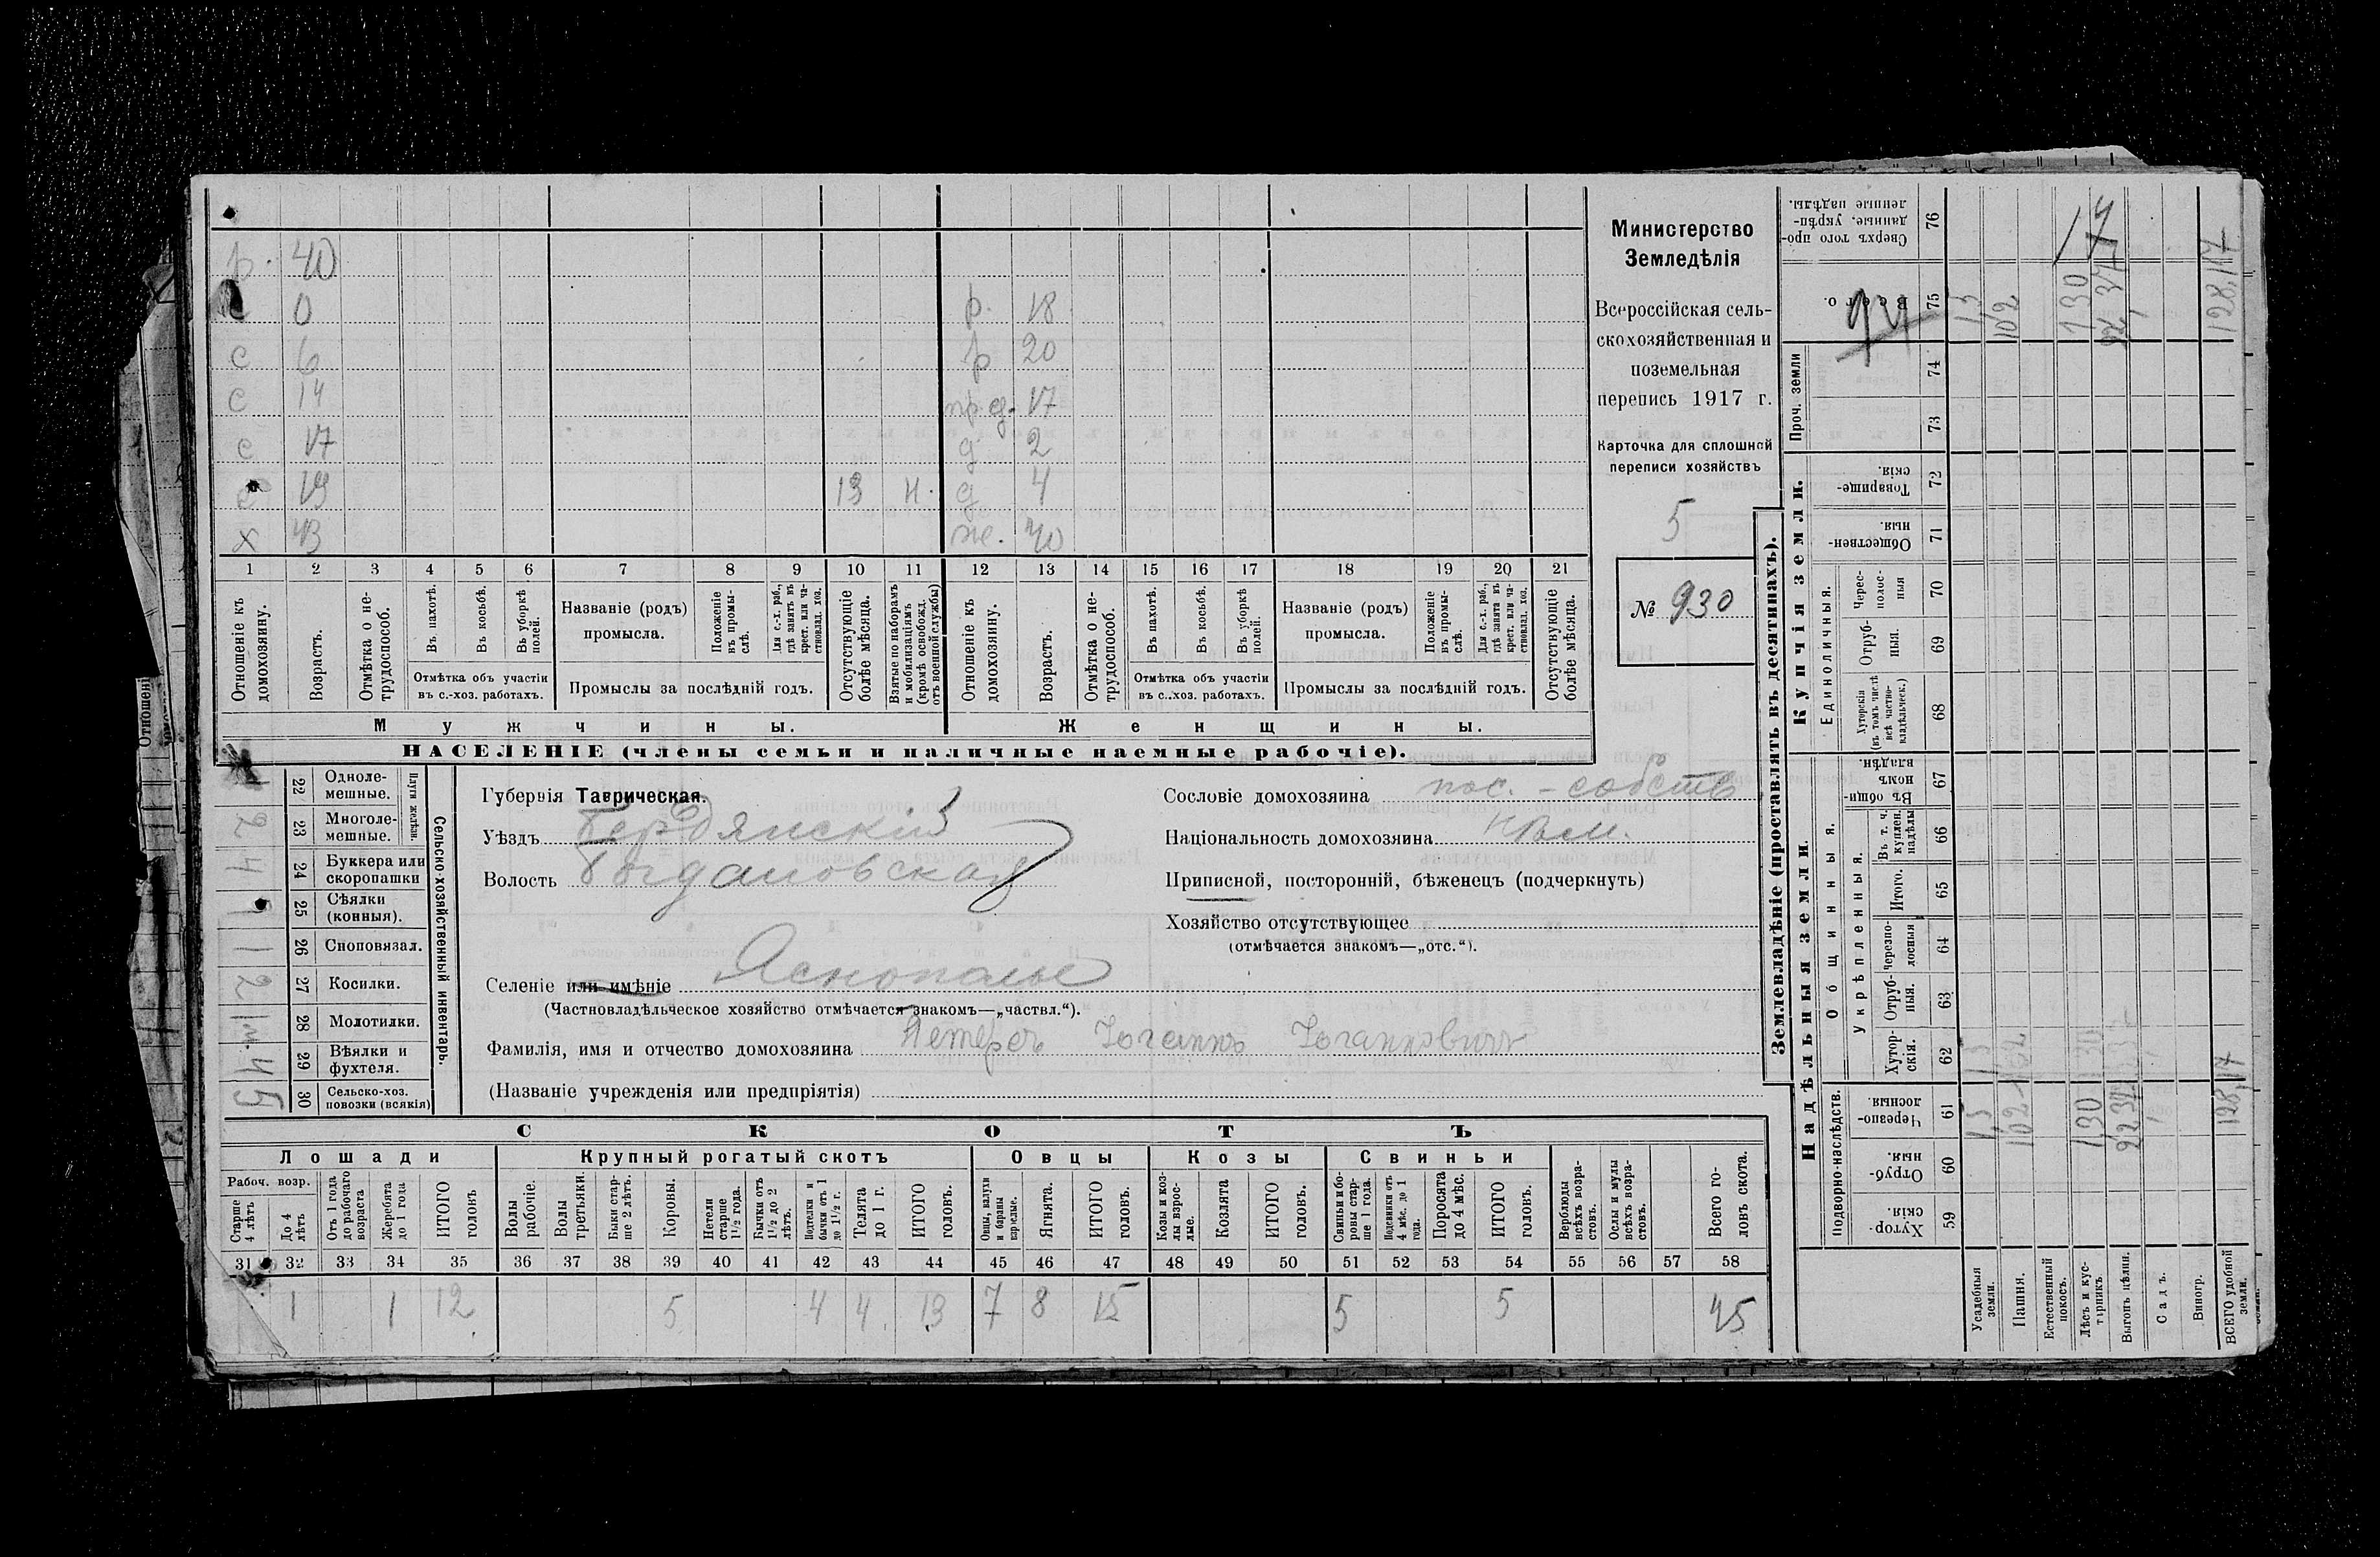 р. 40
0 р. 18
с 6 р 20
с 14 пр.д. 17
с 17 д 2
с 19 13 н. д 4
х 43 же. 40
1 2 3 4 5 6 7 8 9 10 11 12 13 14 15 16 17 18 19 20 21
Отношеніе къ домохозяину.
Возрастъ.
Отмѣтка о не-трудоспособ.
Въ пахотѣ.
Въ косьбѣ.
Въ уборкѣ полей.
Отмѣтка объ участіи въ с.-хоз. работахъ.
Названіе (родъ) промысла.
Положеніе въ промы-слѣ.
Для с.-х. раб., гдѣ занятъ въ крест. или ча-стновлад. хоз.
Промыслы за послѣдній годъ.
Отсутствующіе болѣе мѣсяца.
Взятые по наборамъ и мобилизаціямъ (кромѣ освобожд. отъ военной службы)
Отношеніе къ домохозяину.
Возрастъ.
Отмѣтка о не-трудоспособ.
Въ пахотѣ.
Въ косьбѣ.
Въ уборкѣ полей.
Отмѣтка объ участіи въ с.-хоз. работахъ.
Названіе (родъ) промысла.
Положеніе въ промы-слѣ.
Для с.-х. раб., гдѣ занята въ крест. или ча-стновлад. хоз.
Промыслы за послѣдній годъ.
Отсутствующіе болѣе мѣсяца.
Мужчины. Женщины.
НАСЕЛЕНІЕ (члены семьи и наличные наемные рабочіе).
Министерство
Земледѣлія
Всероссійская сель-
скохозяйственная и
поземельная
перепись 1917 г.
Карточка для сплошной
переписи хозяйствъ
5
№ 930
22 Одноле-мешные.
2 23 Многоле-мешные.
Плуги желѣзн.
4 24 Буккера или скоропашки
1 25 Сѣялки (конныя).
1 26 Сноповязал.
2 27 Косилки.
1 м. 28 Молотилки.
4 29 Вѣялки и фухтеля.
5 30 Сельско-хоз. повозки (всякія)
Сельско-хозяйственный инвентарь.
Губернія Таврическая.
Уѣздъ Бердянскій
Волость Богдановская
Селеніе или имѣніе Яснополье
(Частновладѣльческое хозяйство отмѣчается знакомъ—„частвл.“).
Фамилія, имя и отчество домохозяина Петерсъ Іоганнъ Іоганновичъ
(Названіе учрежденія или предпріятія)
Сословіе домохозяина пос. - собств
Національность домохозяина нѣм.
Приписной, посторонній, бѣженецъ (подчеркнуть)
Хозяйство отсутствующее
(отмѣчается знакомъ—„отс.“).
СКОТЪ
Лошади Крупный рогатый скотъ Овцы Козы Свиньи
Рабоч. возр.
Старше 4 лѣтъ
До 4 лѣтъ
Отъ 1 года до рабочаго возраста
Жеребята до 1 года
ИТОГО головъ
Волы рабочіе.
Волы третьяки.
Быки стар-ше 2 лѣтъ.
Коровы.
Нетели старше 1½ года.
Бычки отъ 1½ до 2 лѣтъ.
Подтелки и бычки отъ 1 до 1½ г.
Телята до 1 г.
ИТОГО головъ.
Овцы, валухи и бараны взрослые.
Ягнята.
ИТОГО головъ.
Козы и коз-лы взрос-лые.
Козлята
ИТОГО головъ.
Свиньи и бо-ровы стар-ше 1 года.
Подсвинки отъ 4 мѣс. до 1 года.
Поросята до 4 мѣс.
ИТОГО головъ.
Верблюды всѣхъ возра-стовъ.
Ослы и мулы всѣхъ возра-стовъ.
Всего го-ловъ скота.
31 32 33 34 35 36 37 38 39 40 41 42 43 44 45 46 47 48 49 50 51 52 53 54 55 56 57 58
1 1 12 5 4 4 13 7 8 15 5 5 45
Землевладѣніе (проставлять въ десятинахъ).
Надѣльныя земли.
Купчія земли.
Проч. земли
Подворно-наслѣдств.
Общинныя.
Укрѣпленныя.
Единоличныя.
Хутор-скія. 59
Отруб-ныя. 60
Черезпо-лосныя. 61
Хутор-скія. 62
Отруб-ныя. 63
Черезпо-лосныя 64
Итого. 65
Въ т. ч. куплен. надѣлы 66
Въ общи-номъ владѣн. 67
Хуторскія (въ томъ числѣ всѣ частно-владѣльческ.) 68
Отруб-ныя. 69
Черес-полос-ныя 70
Обществен-ныя. 71
Товарище-скія. 72
73
74
Всего. 75
Сверхъ того про-данные, укрѣп-ленные надѣлы. 76
Усадебныя земли. 1,5 1,5
Пашня. 102 102
Естественный покосъ.
Лѣсъ и кус-тарникъ. 1,30 1,30
Выгонъ цѣлин. 22,37 22,37
Садъ.
Виногр.
ВСЕГО удобной земли. 128,17 128,17